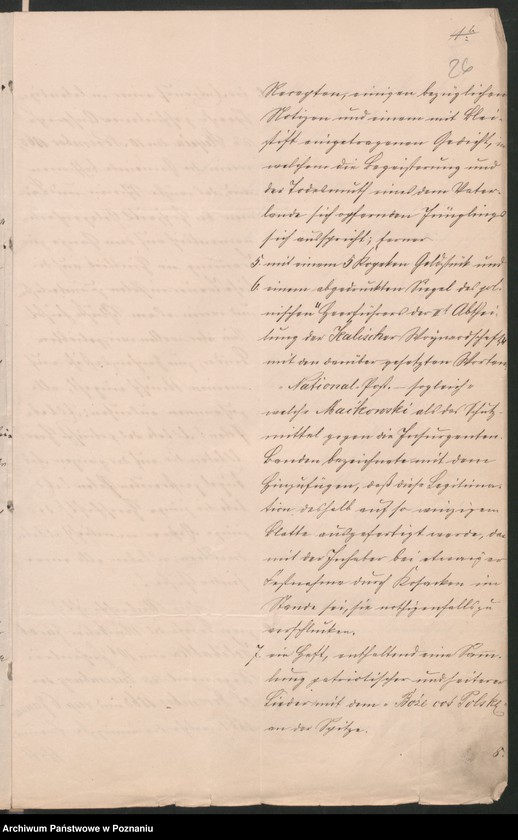 16
26
Rezepten, einigen bezüglichen
Notizen und einem mit Blei-
stift eingetragenen Gedicht, in
welchem die Begeisterung und
der Todesmuth eines dem Vater-
lande sich opfernden Jünglings
sich ausspricht; ferner
5. mit einem 5 Kopeken Geldstück und
6. einem abgedruckten Siegel des pol-
nischen "Heerführers der Abthei-
lung der Kalischer Woywodschaft"
mit den darüber gesetzten Worten
"National-Post. – sogleich"
welche Maćkowski als das Schutz-
mittel gegen die Insurgenten-
Banden bezeichnete mit dem
Hinzufügen, daß diese Legitima-
tion deshalb auf so winzigem
Blatte ausgefertigt werde, da-
mit der Inhaber bei etwaiger
Festnahme durch Kosacken im
Stande sei, sie nöthigenfalls zu
verschlucken.
7. ein Heft, enthaltend eine Samm-
lung patriotischer und heiterer
Lieder mit dem "Boże coś Polskę"
an der Spitze.
Archiwum Państwowe w Poznaniu